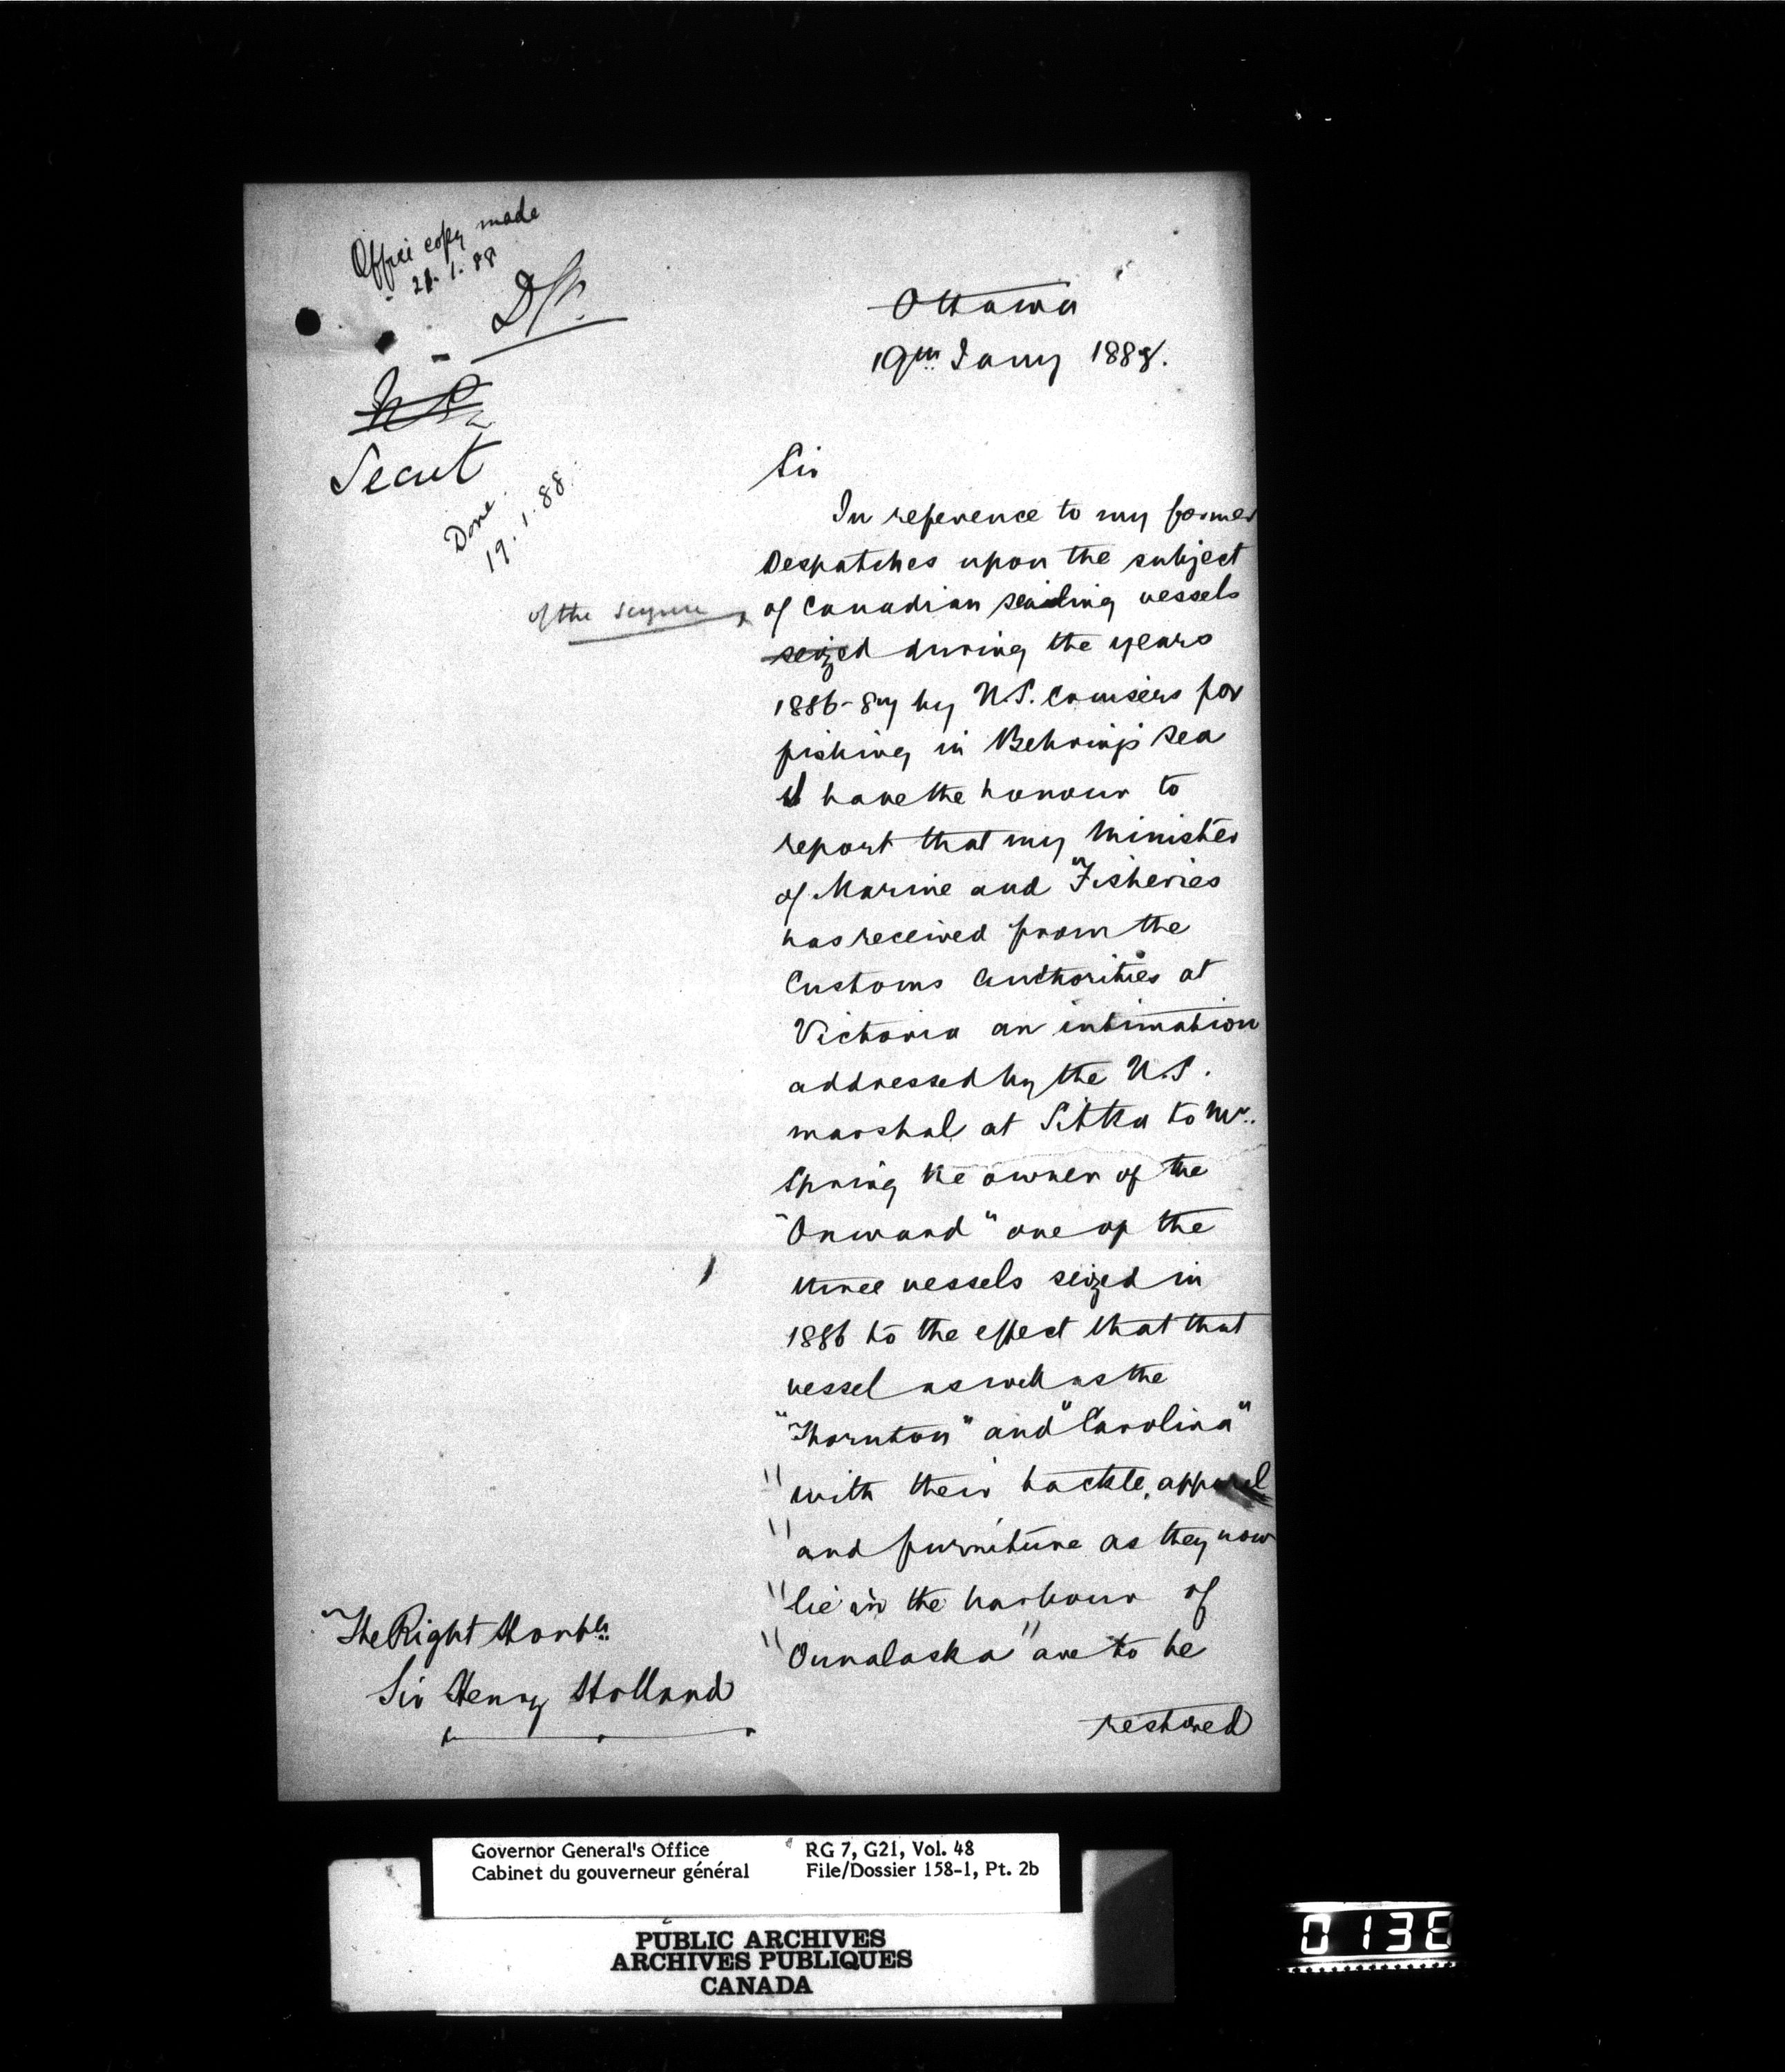 Office copy made
21.1.88
Dft.
Secret
Done
19.1.88.
Ottawa
19th Jany 1888.
Sir
In reference to my former
Despatches upon the subject
of the seizure
of Canadian sealing vessels
seized during the years
1886-87 by U.S. Cruisers for
fishing in Behring's Sea
I have the honour to
report that my Minister
of Marine and Fisheries
has received from the
Customs Authorities at
Victoria an intimation
addressed by the U.S.
marshal at Sitka to Mr.
Spring the owner of the
"Onward" one of the
three vessels seized in
1886 to the effect that that
vessel as well as the
"Thornton" and "Carolina"
"with their tackle, apparel
"and furniture as they now
"lie in the harbour of
"Ounalaska" are to be
restored
The Right Honble.
Sir Henry Holland
Governor General's Office RG 7, G21, Vol. 48
Cabinet du gouverneur général File/Dossier 158-1, Pt. 2b
PUBLIC ARCHIVES
ARCHIVES PUBLIQUES
CANADA